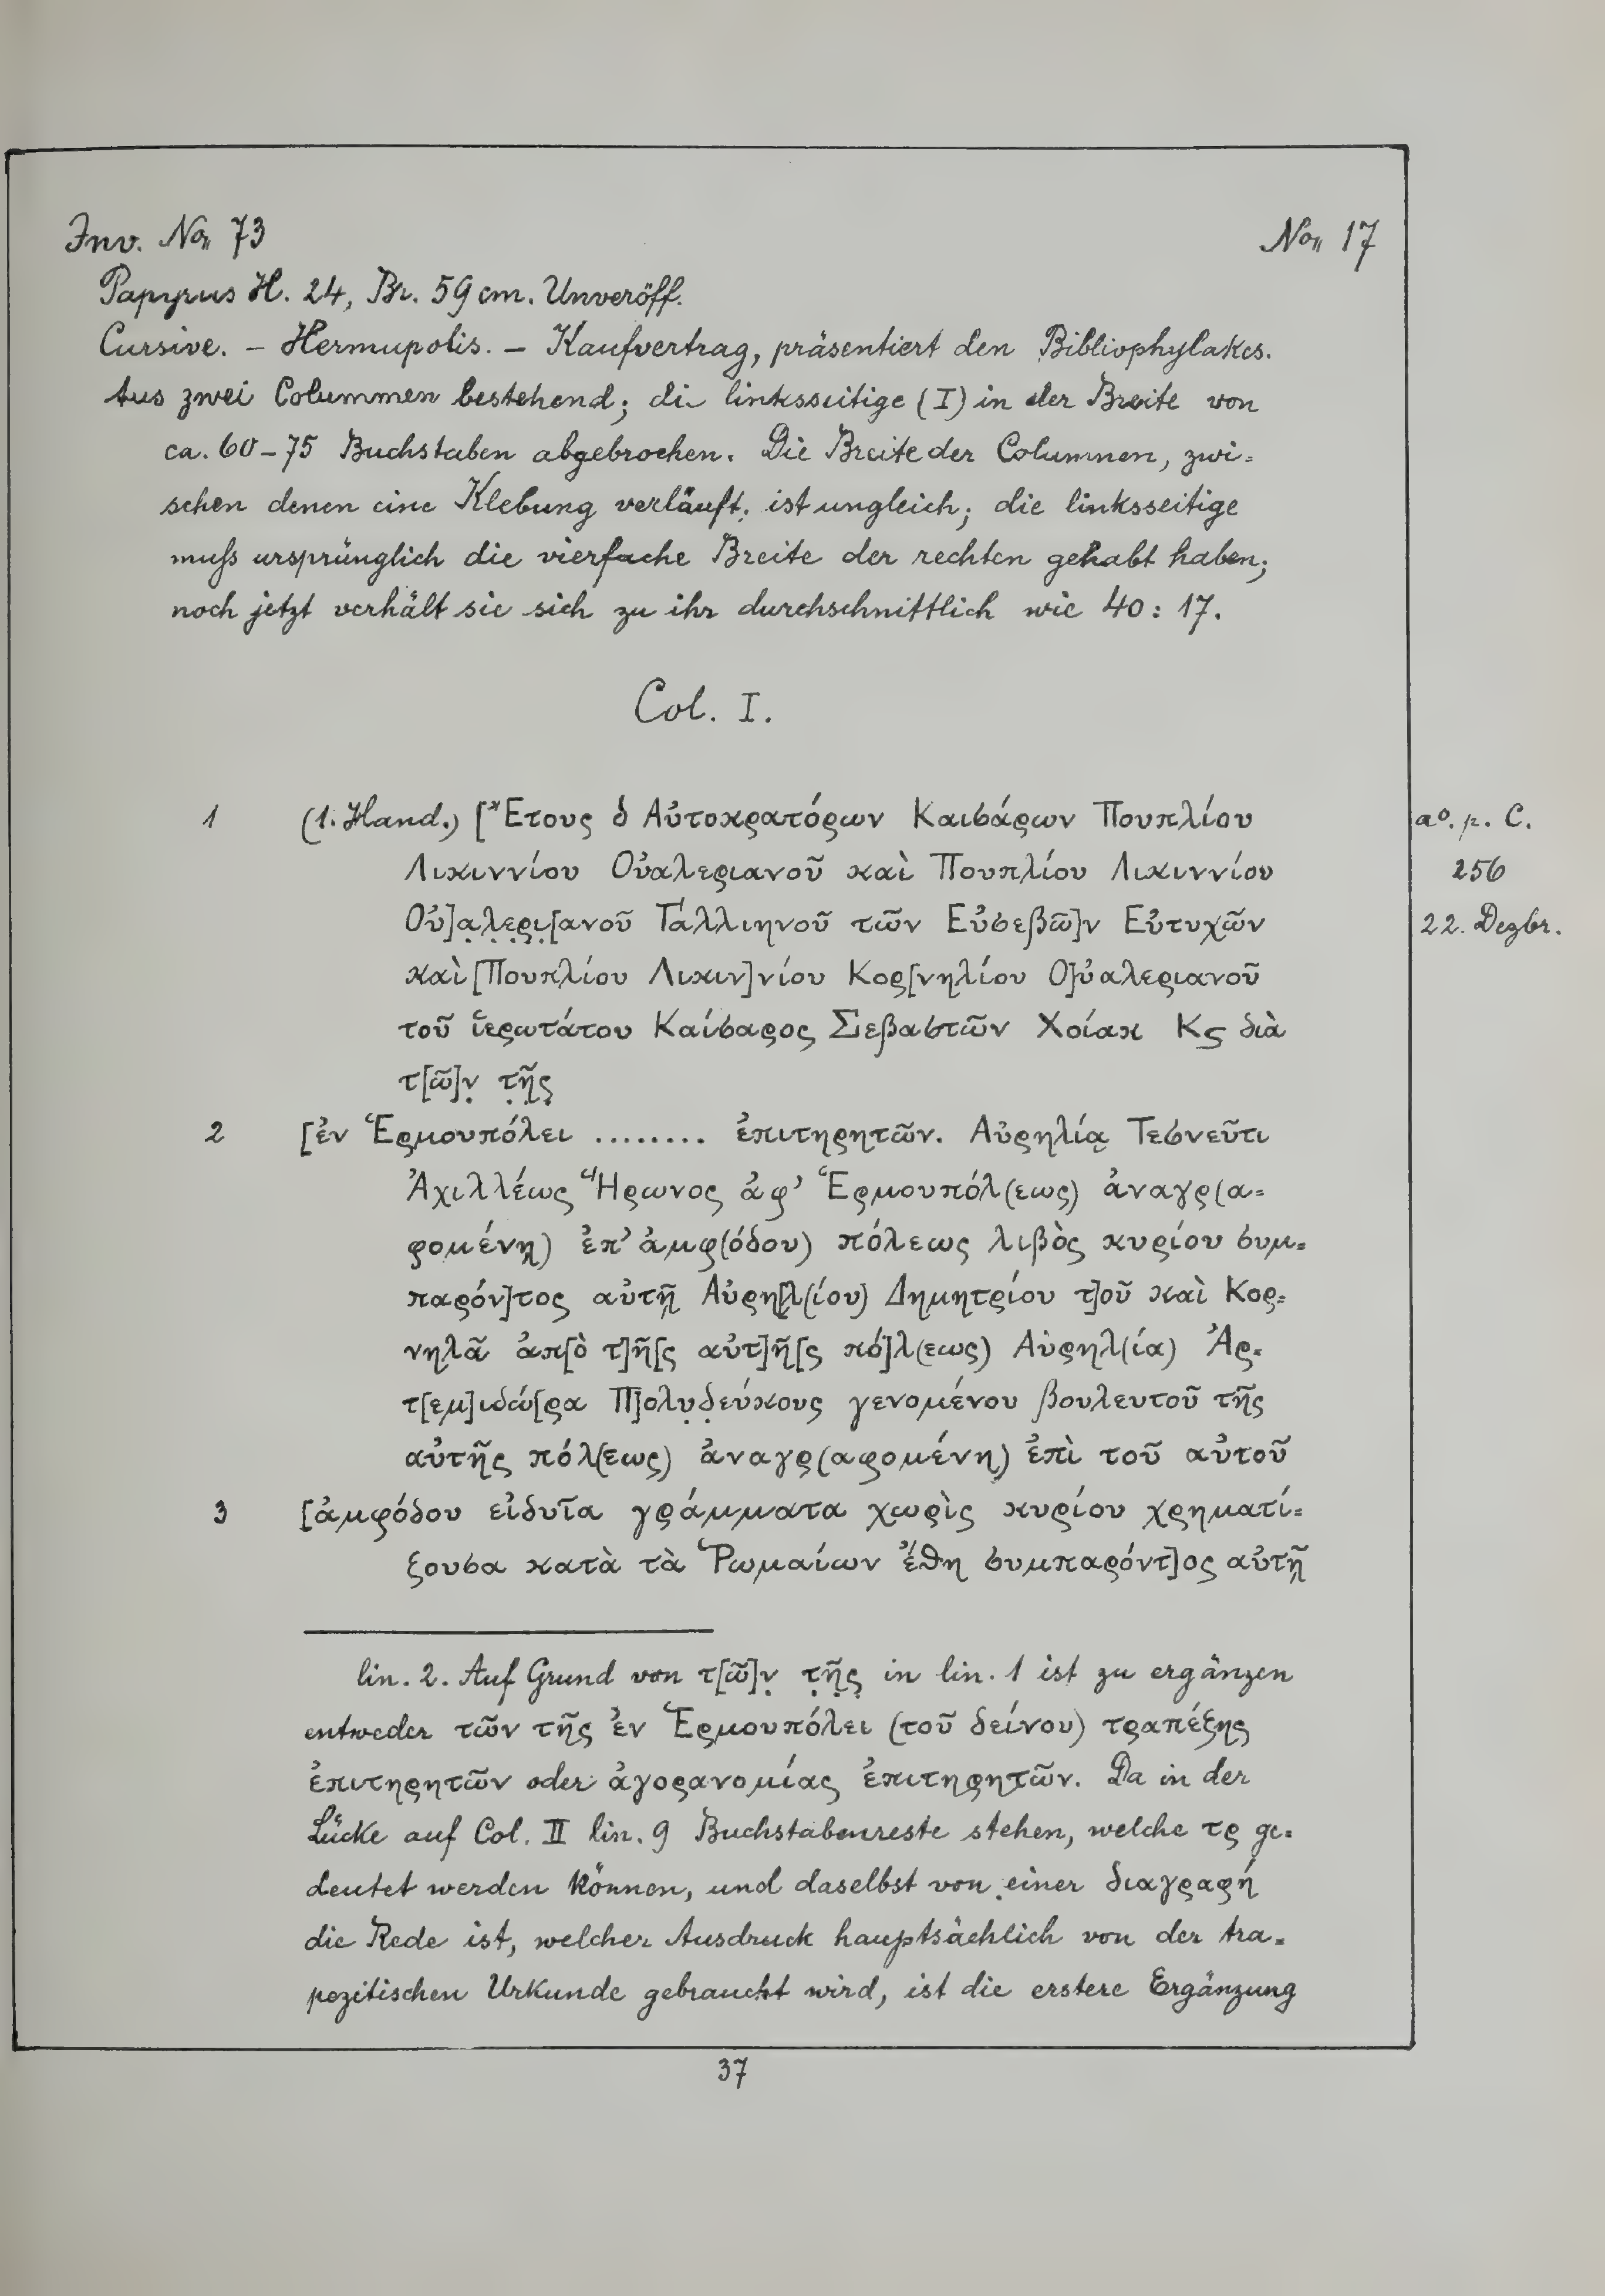 Inv. No. 73
No. 17
Papyrus H. 24, Br. 59 cm. Unveröff.
Cursive. – Hermupolis. – Kaufvertrag, präsentiert den Bibliophylakes.
Aus zwei Columnen bestehend; die linksseitige (I) in der Breite von
ca. 60–75 Buchstaben abgebrochen. Die Breite der Columnen, zwi=
schen denen eine Klebung verläuft, ist ungleich; die linksseitige
muß ursprünglich die vierfache Breite der rechten gehabt haben;
noch jetzt verhält sie sich zu ihr durchschnittlich wie 40 : 17.
Col. I.
1 (1. Hand.) [Ἔτους δ Αὐτοκρατόρων Καισάρων Πουπλίου
a⁰. p. C.
Λικιννίου Οὐαλεριανοῦ καὶ Πουπλίου Λικιννίου
256
Οὐ]α̣λ̣ε̣ρ̣ι̣[ανοῦ Γαλλιηνοῦ τῶν Εὐσεβῶ]ν Εὐτυχῶν
22. Dezbr.
καὶ [Πουπλίου Λικιν]νίου Κορ[νηλίου Ο]ὐαλεριανοῦ
τοῦ ἱερωτάτου Καίσαρος Σεβαστῶν Χοίακ Κς διὰ
τ[ῶ]ν̣ τ̣ῆ̣ς̣
2 [ἐν Ἑρμουπόλει ........ ἐπιτηρητῶν. Αὐρηλίᾳ Τεσνεῦτι
Ἀχιλλέως Ἥρωνος ἀφ’ Ἑρμουπόλ(εως) ἀναγρ(α=
φομένῃ) ἐπ’ ἀμφ(όδου) πόλεως λιβὸς κυρίου συμ=
παρόν]τος αὐτῇ Αὐρη[λ(ίου) Δημητρίου τ]οῦ καὶ Κορ=
νηλᾶ ἀπ[ὸ τ]ῆ[ς αὐτ]ῆ[ς πό]λ(εως) Αὐρηλ(ία) Ἀρ=
τ[εμ]ιδώ[ρα Π]ολυ̣δ̣εύκους γενομένου βουλευτοῦ τῆς
αὐτῆς πόλ(εως) ἀναγρ(αφομένη) ἐπὶ τοῦ αὐτοῦ
3 [ἀμφόδου εἰδυῖα γράμματα χωρὶς κυρίου χρηματί=
ζουσα κατὰ τὰ Ῥωμαίων ἔθη συμπαρόντ]ος αὐτῇ
lin. 2. Auf Grund von τ[ῶ]ν̣ τ̣ῆ̣ς̣ in lin. 1 ist zu ergänzen
entweder τῶν τῆς ἐν Ἑρμουπόλει (τοῦ δείνου) τραπέζης
ἐπιτηρητῶν oder ἀγορανομίας ἐπιτηρητῶν. Da in der
Lücke auf Col. II lin. 9 Buchstabenreste stehen, welche τρ ge=
deutet werden können, und daselbst von einer διαγραφή
die Rede ist, welcher Ausdruck hauptsächlich von der tra=
pezitischen Urkunde gebraucht wird, ist die erstere Ergänzung
37